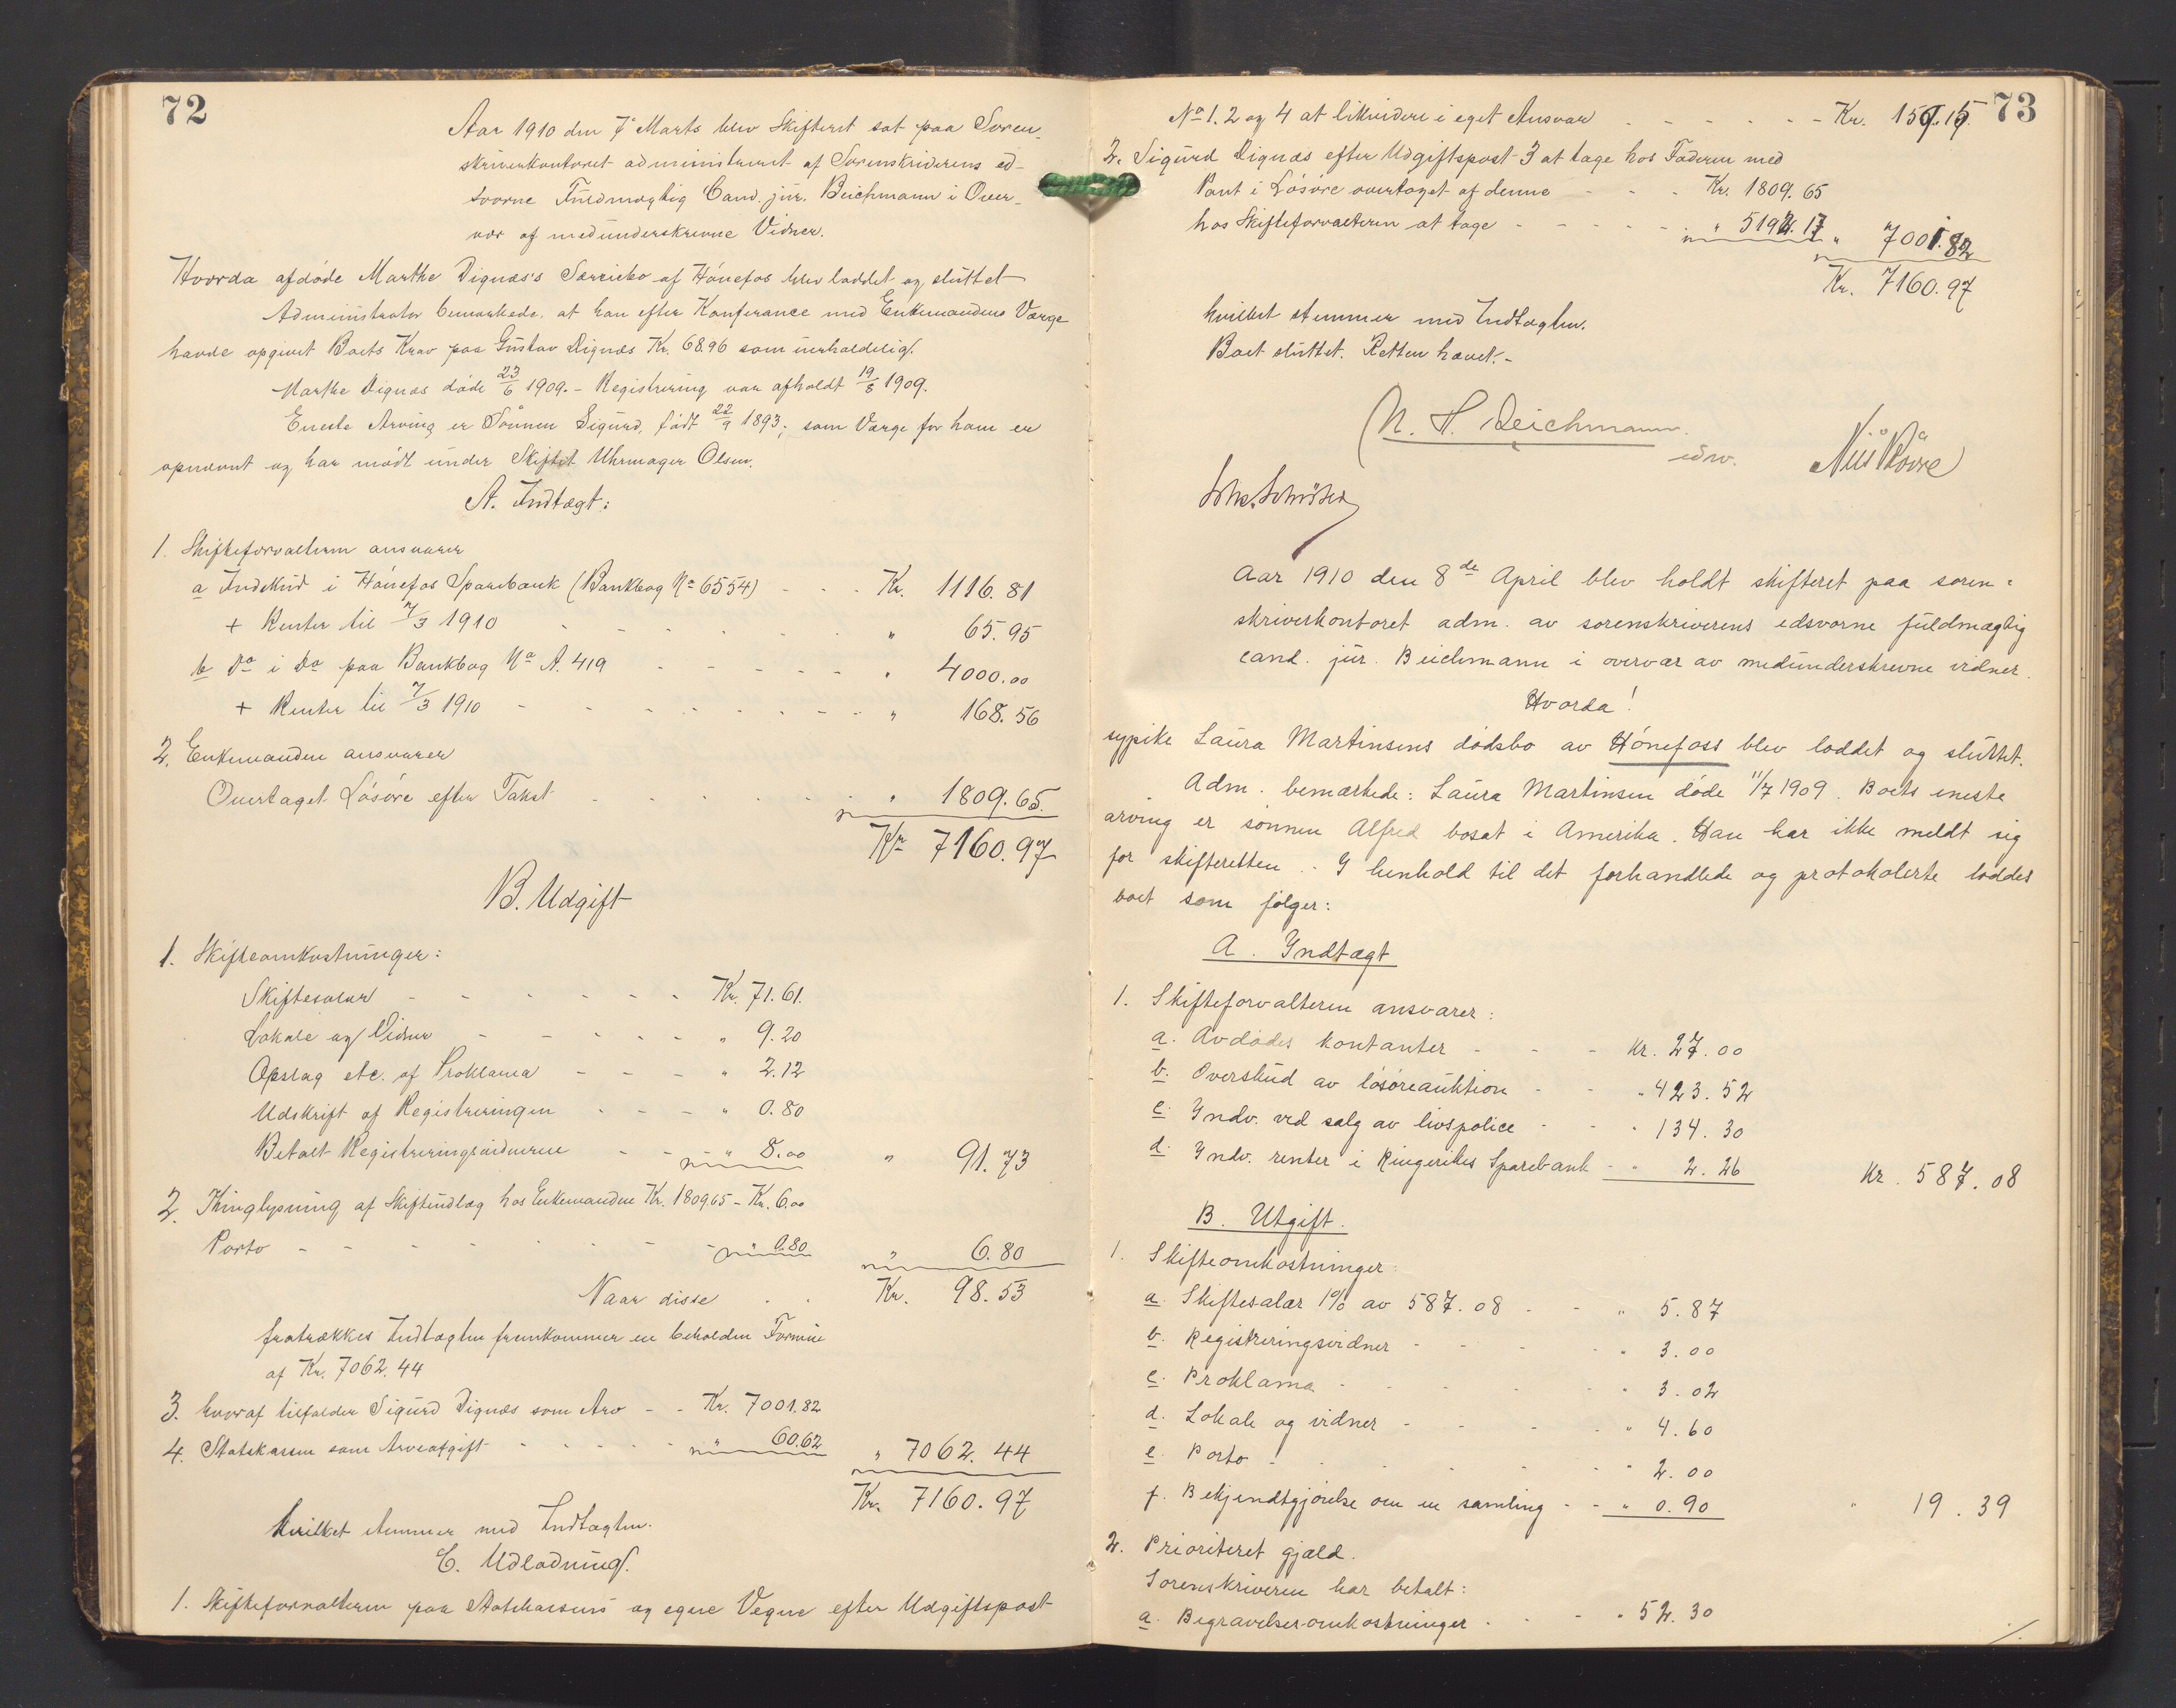 72
Aar 1910 den 7' Marts blev Skifteret sat paa Soren-
skriverkontoret administreret af Sorenskriverens ed-
svorne Fuldmægtig Cand. jur. Beichmann i Over-
vær af medunderskrevne Vidner.
Hvorda afdøde Marthe Dignæs's Særriebo af Hönefos blev loddet og sluttet
Administrator bemærkede, at han efter Konferance med Enkemandens Værge
havde opgivet Boets Krav paa Gustav Dignæs Kr. 68.96 som uerholdelig.
Marthe Dignæs døde 23/6 1909. - Registrering var afholdt 19/8 1909.
Eneste Arving er Sönnen Sigurd, født 22/9 1893; som Værge for ham er
opnævnt og har mødt under Skiftet Uhrmager Olsen.
A. Indtægt:
1. Skifteforvalteren ansvarer
a Indskud i Hönefos Sparebank (Bankbog No 6554) - - - Kr. 1116.81
+ Renter til 7/3 1910 - - - " 65.95
b Do i Do paa Bankbog No A. 419 - - - " 4000.00
+ Renter til 7/3 1910 - - - " 168.56
2. Enkemanden ansvarer
Overtaget Løsøre efter Takst - - - " 1809.65.
Kr 7160.97
B. Udgift
1. Skifteomkostninger:
Skiftesalær - - - Kr. 71.61.
Lokale og Vidner - - - " 9.20
Opslag etc. af Proklama - - - " 2.12
Udskrift af Registreringen - - - " 0.80
Betalt Registreringsvidnerne - - " 8.00 " 91.73
2. Thinglysning af Skifteudlæg hos Enkemanden Kr. 1809.65 - Kr. 6.00
Porto - - - " 0.80 " 6.80
Naar disse . . Kr. 98.53
fratrækkes Indtægten fremkommer en beholden Formue
af Kr. 7062.44
3. hvoraf tilfalder Sigurd Dignæs som Arv - - Kr. 7001.82
4. Statskassen som Arveafgift - - - " 60.62 " 7062.44
Kr. 7160.97
hvilket stemmer med Indtægten.
C. Udlodning.
1. Skifteforvalteren paa Statskassens og egne Vegne efter Udgiftspost
73
No 1. 2 og 4 at likvidere i eget Ansvar - - - Kr. 159.15
2. Sigurd Dignæs efter Udgiftspost 3 at tage hos Faderen med
Pant i Løsøre overtaget af denne - - - Kr. 1809.65
hos Skifteforvalteren at tage - - - " 5192.17 " 7001.82
Kr. 7160.97
hvilket stemmer med Indtægten.
Boet sluttet. Retten hævet. -
N. H. Beichmann.
edsv.
Aar 1910 den 8de April blev holdt skifteret paa soren-
skriverkontoret adm. av sorenskriverens edsvorne fuldmægtig
cand. jur. Beichmann i overvær av medunderskrevne vidner.
Hvorda!
sypike Laura Martinsens dødsbo av Hönefoss blev loddet og sluttet.
Adm. bemærkede: Laura Martinsen døde 11/7 1909. Boets eneste
arving er sønnen Alfred bosat i Amerika. Han har ikke meldt sig
for skifteretten. - I henhold til det forhandlede og protokolerte loddes
boet som følger:
A. Indtægt
1. Skifteforvalteren ansvarer:
a. Avdødes kontanter - - - Kr. 27.00
b. Overskud av løsøreauktion - - " 423.52
c. Indv. ved salg av livspolice - - " 134.30
d. Indv. renter i Ringerikes Sparebank - " 2.26 Kr. 587.08
B. Utgift.
1. Skifteomkostninger:
a. Skiftesalær 1% av 587.08 - - " 5.87
b. Registreringsvidner - - - " 3.00
c. Proklama - - - " 3.02
d. Lokale og vidner - - - " 4.60
e. Porto - - - " 2.00
f. Bekjendtgjørelse om en samling - - " 0.90 " 19.39
2. Prioriteret gjæld.
Sorenskriveren har betalt:
a. Begravelsesomkostninger - - - " 52.30
./.